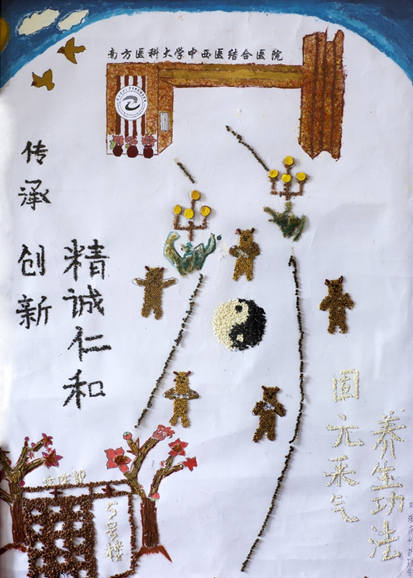 南方医科大学中西医结合医院
传承
创新
精诚仁和
固元采气
养生功法